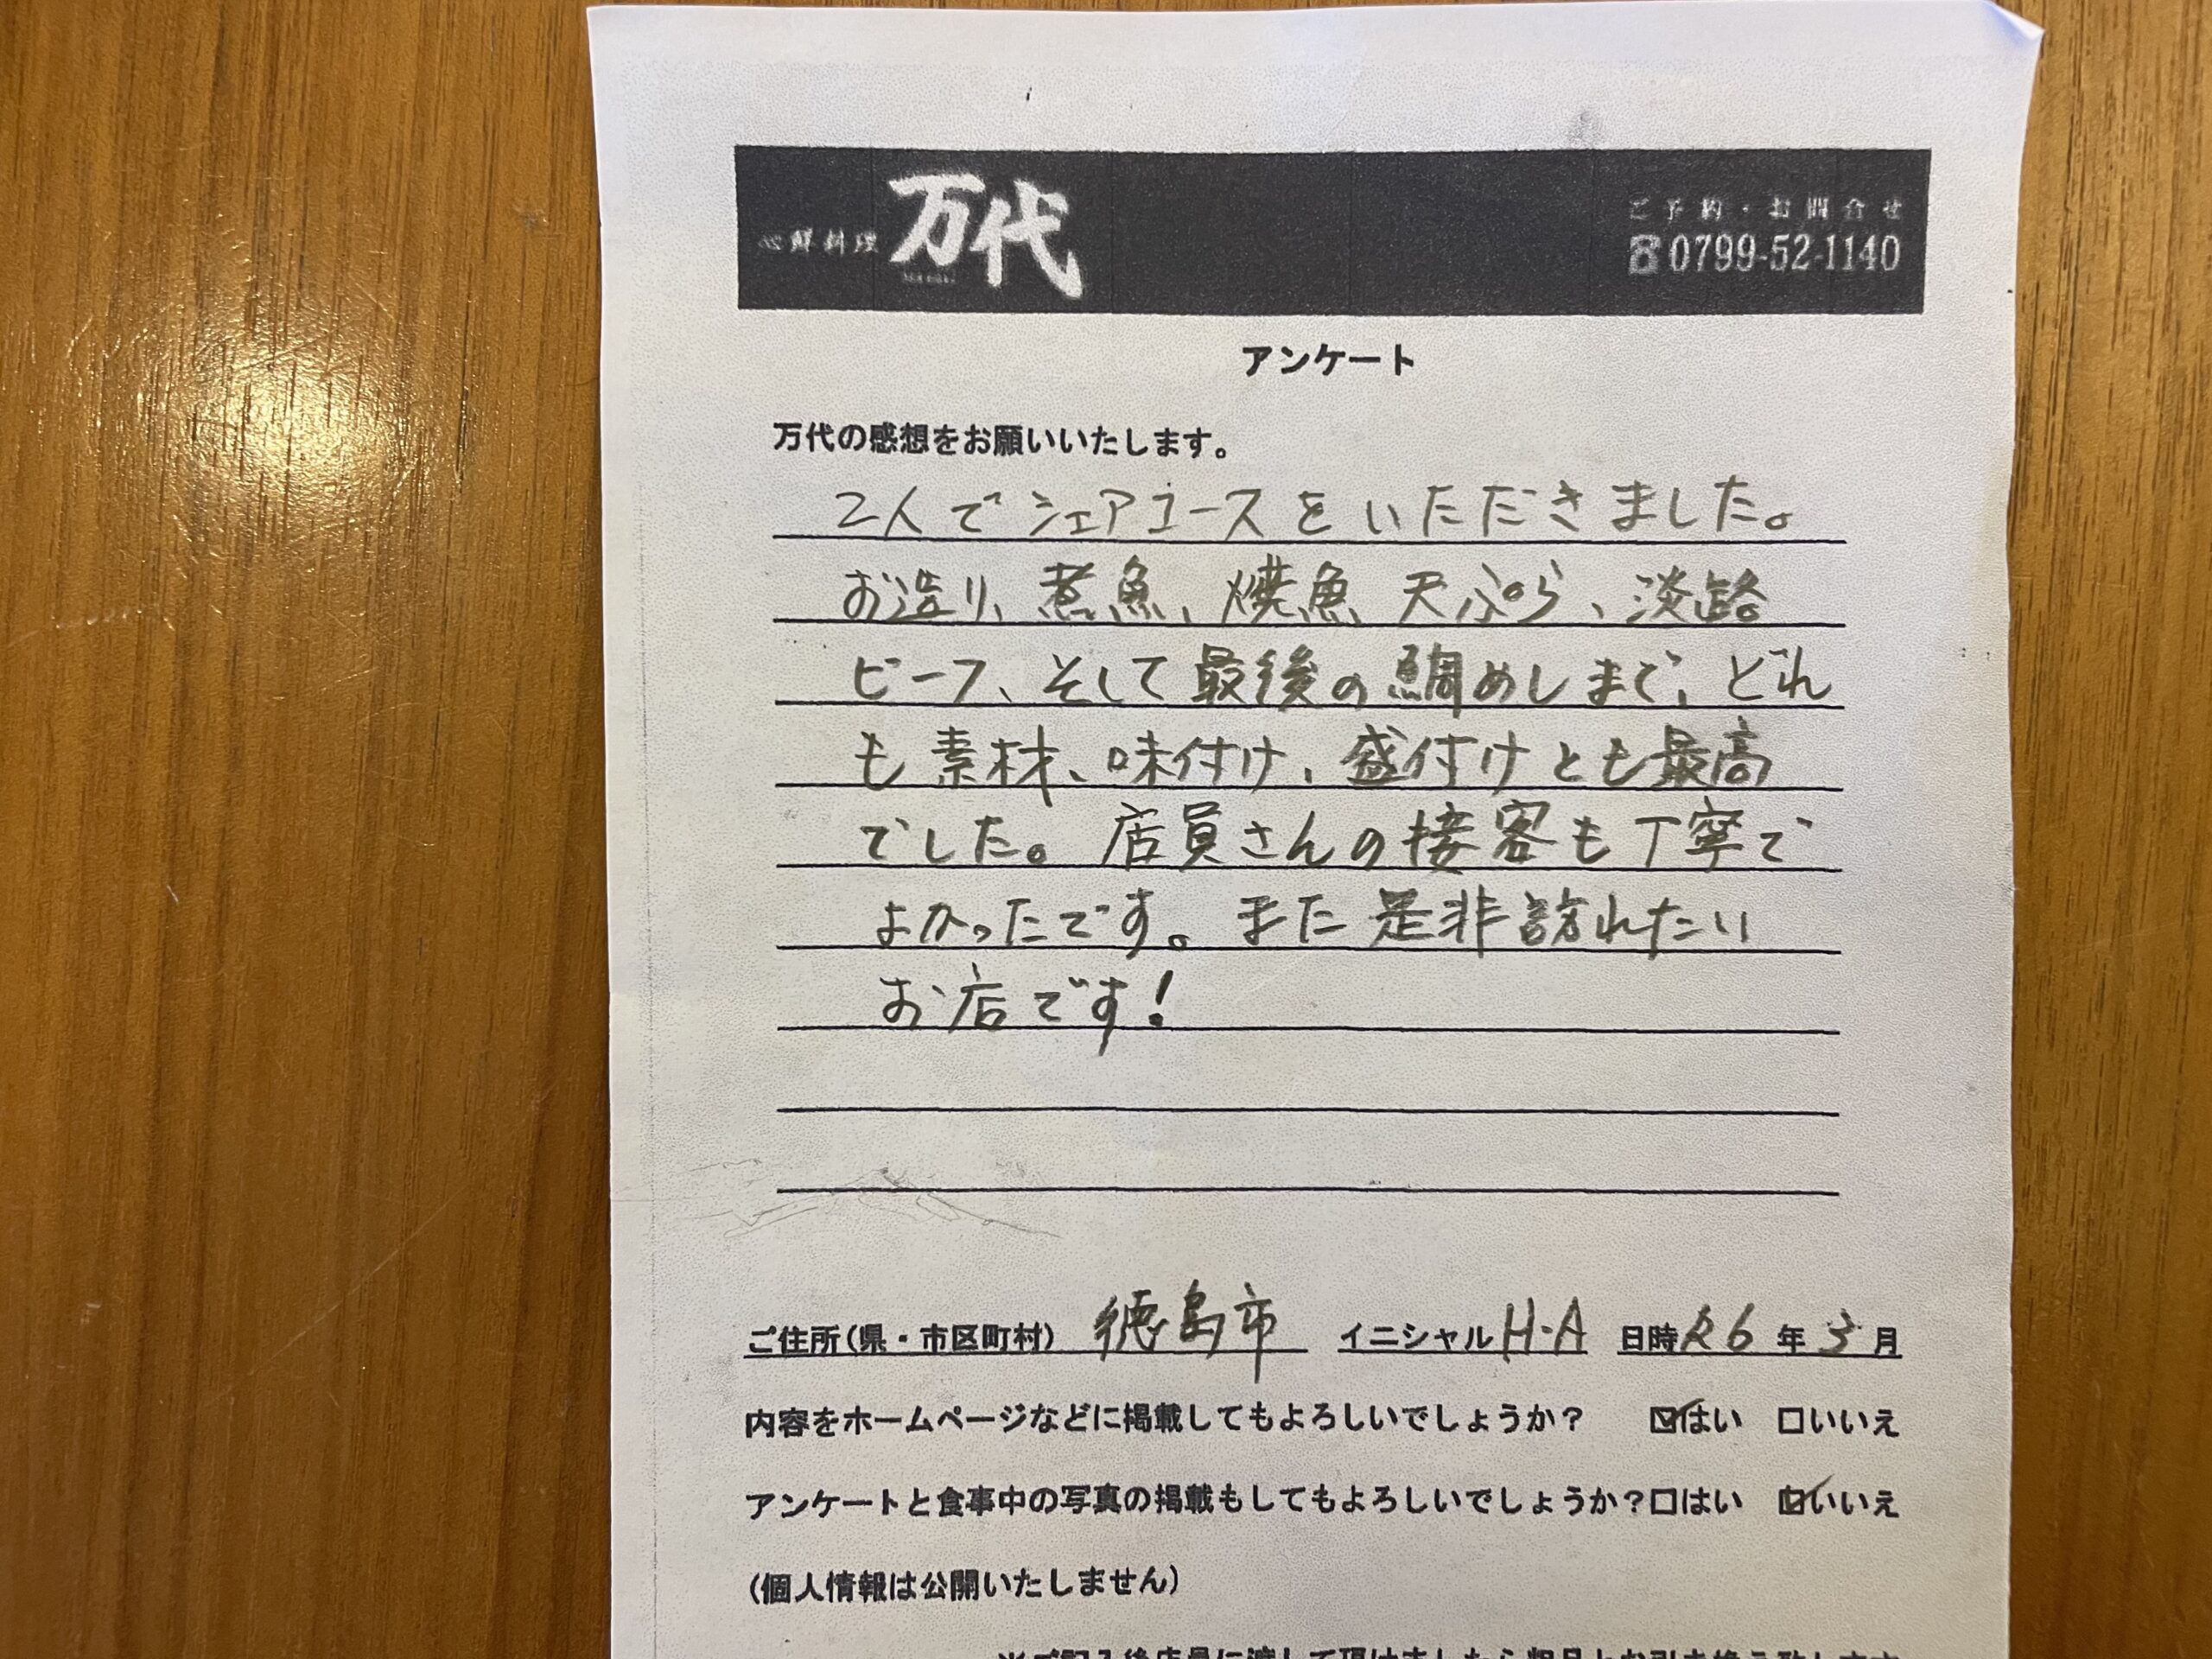 心鮮料理 万代
ご予約・お問合せ
☎0799-52-1140
アンケート
万代の感想をお願いいたします。
2人でシェアコースをいただきました。
お造り、煮魚、焼魚、天ぷら、淡路
ビーフ、そして最後の鯛めしまで、どれ
も素材、味付け、盛付けとも最高
でした。店員さんの接客も丁寧で
よかったです。また是非訪れたい
お店です!
ご住所(県・市区町村) 徳島市 イニシャル H・A 日時 R6年3月
内容をホームページなどに掲載してもよろしいでしょうか? ☑はい □いいえ
アンケートと食事中の写真の掲載もしてもよろしいでしょうか?□はい ☑いいえ
(個人情報は公開いたしません)